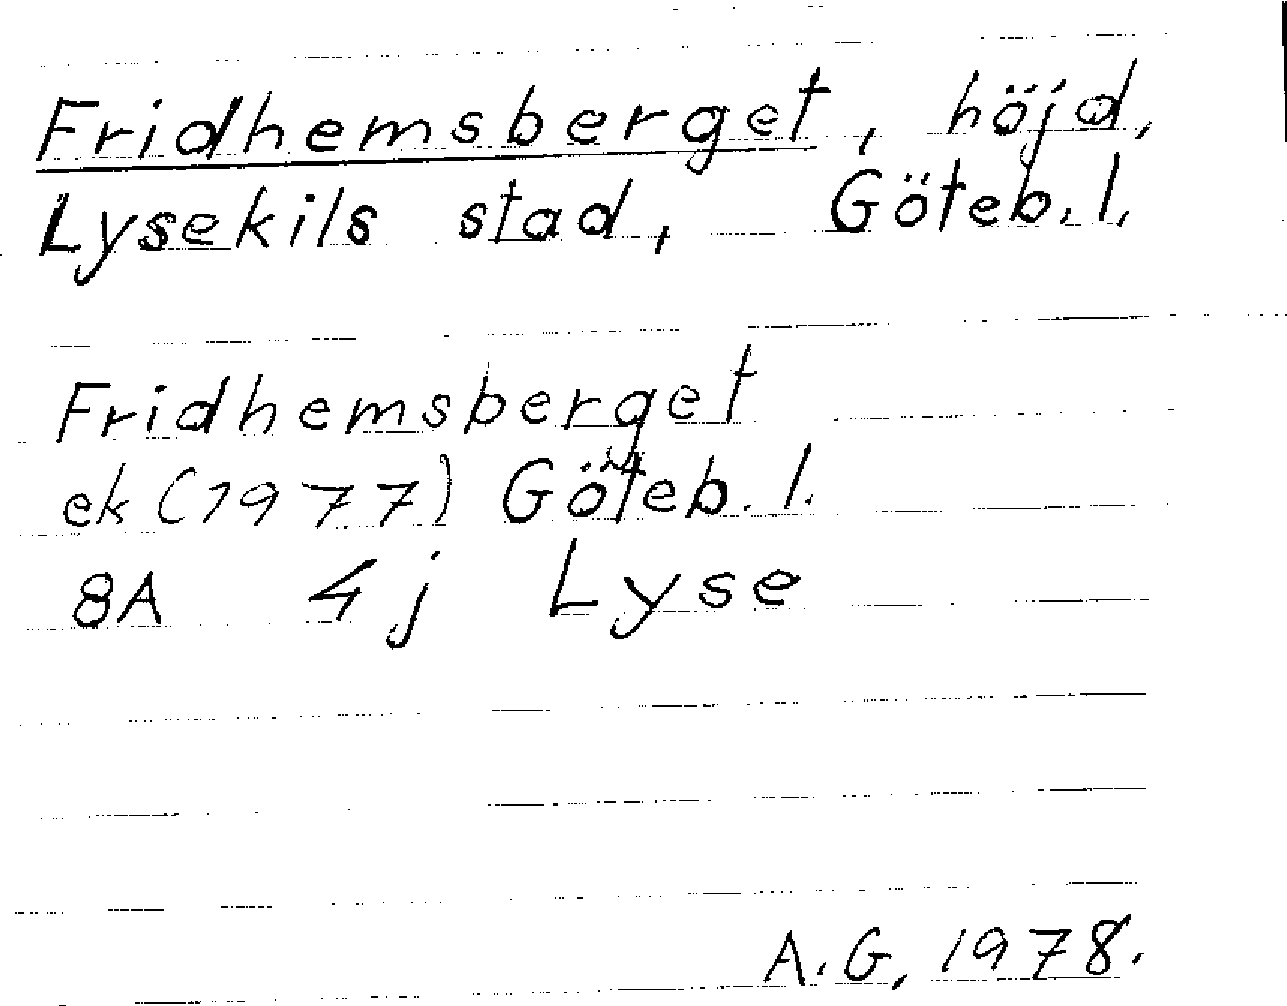 Fridhemsberget, höjd,
Lysekils stad, Göteb. l.
Fridhemsberget
ek (1977) Göteb. l.
8A 4j Lyse
A.G. 1978.